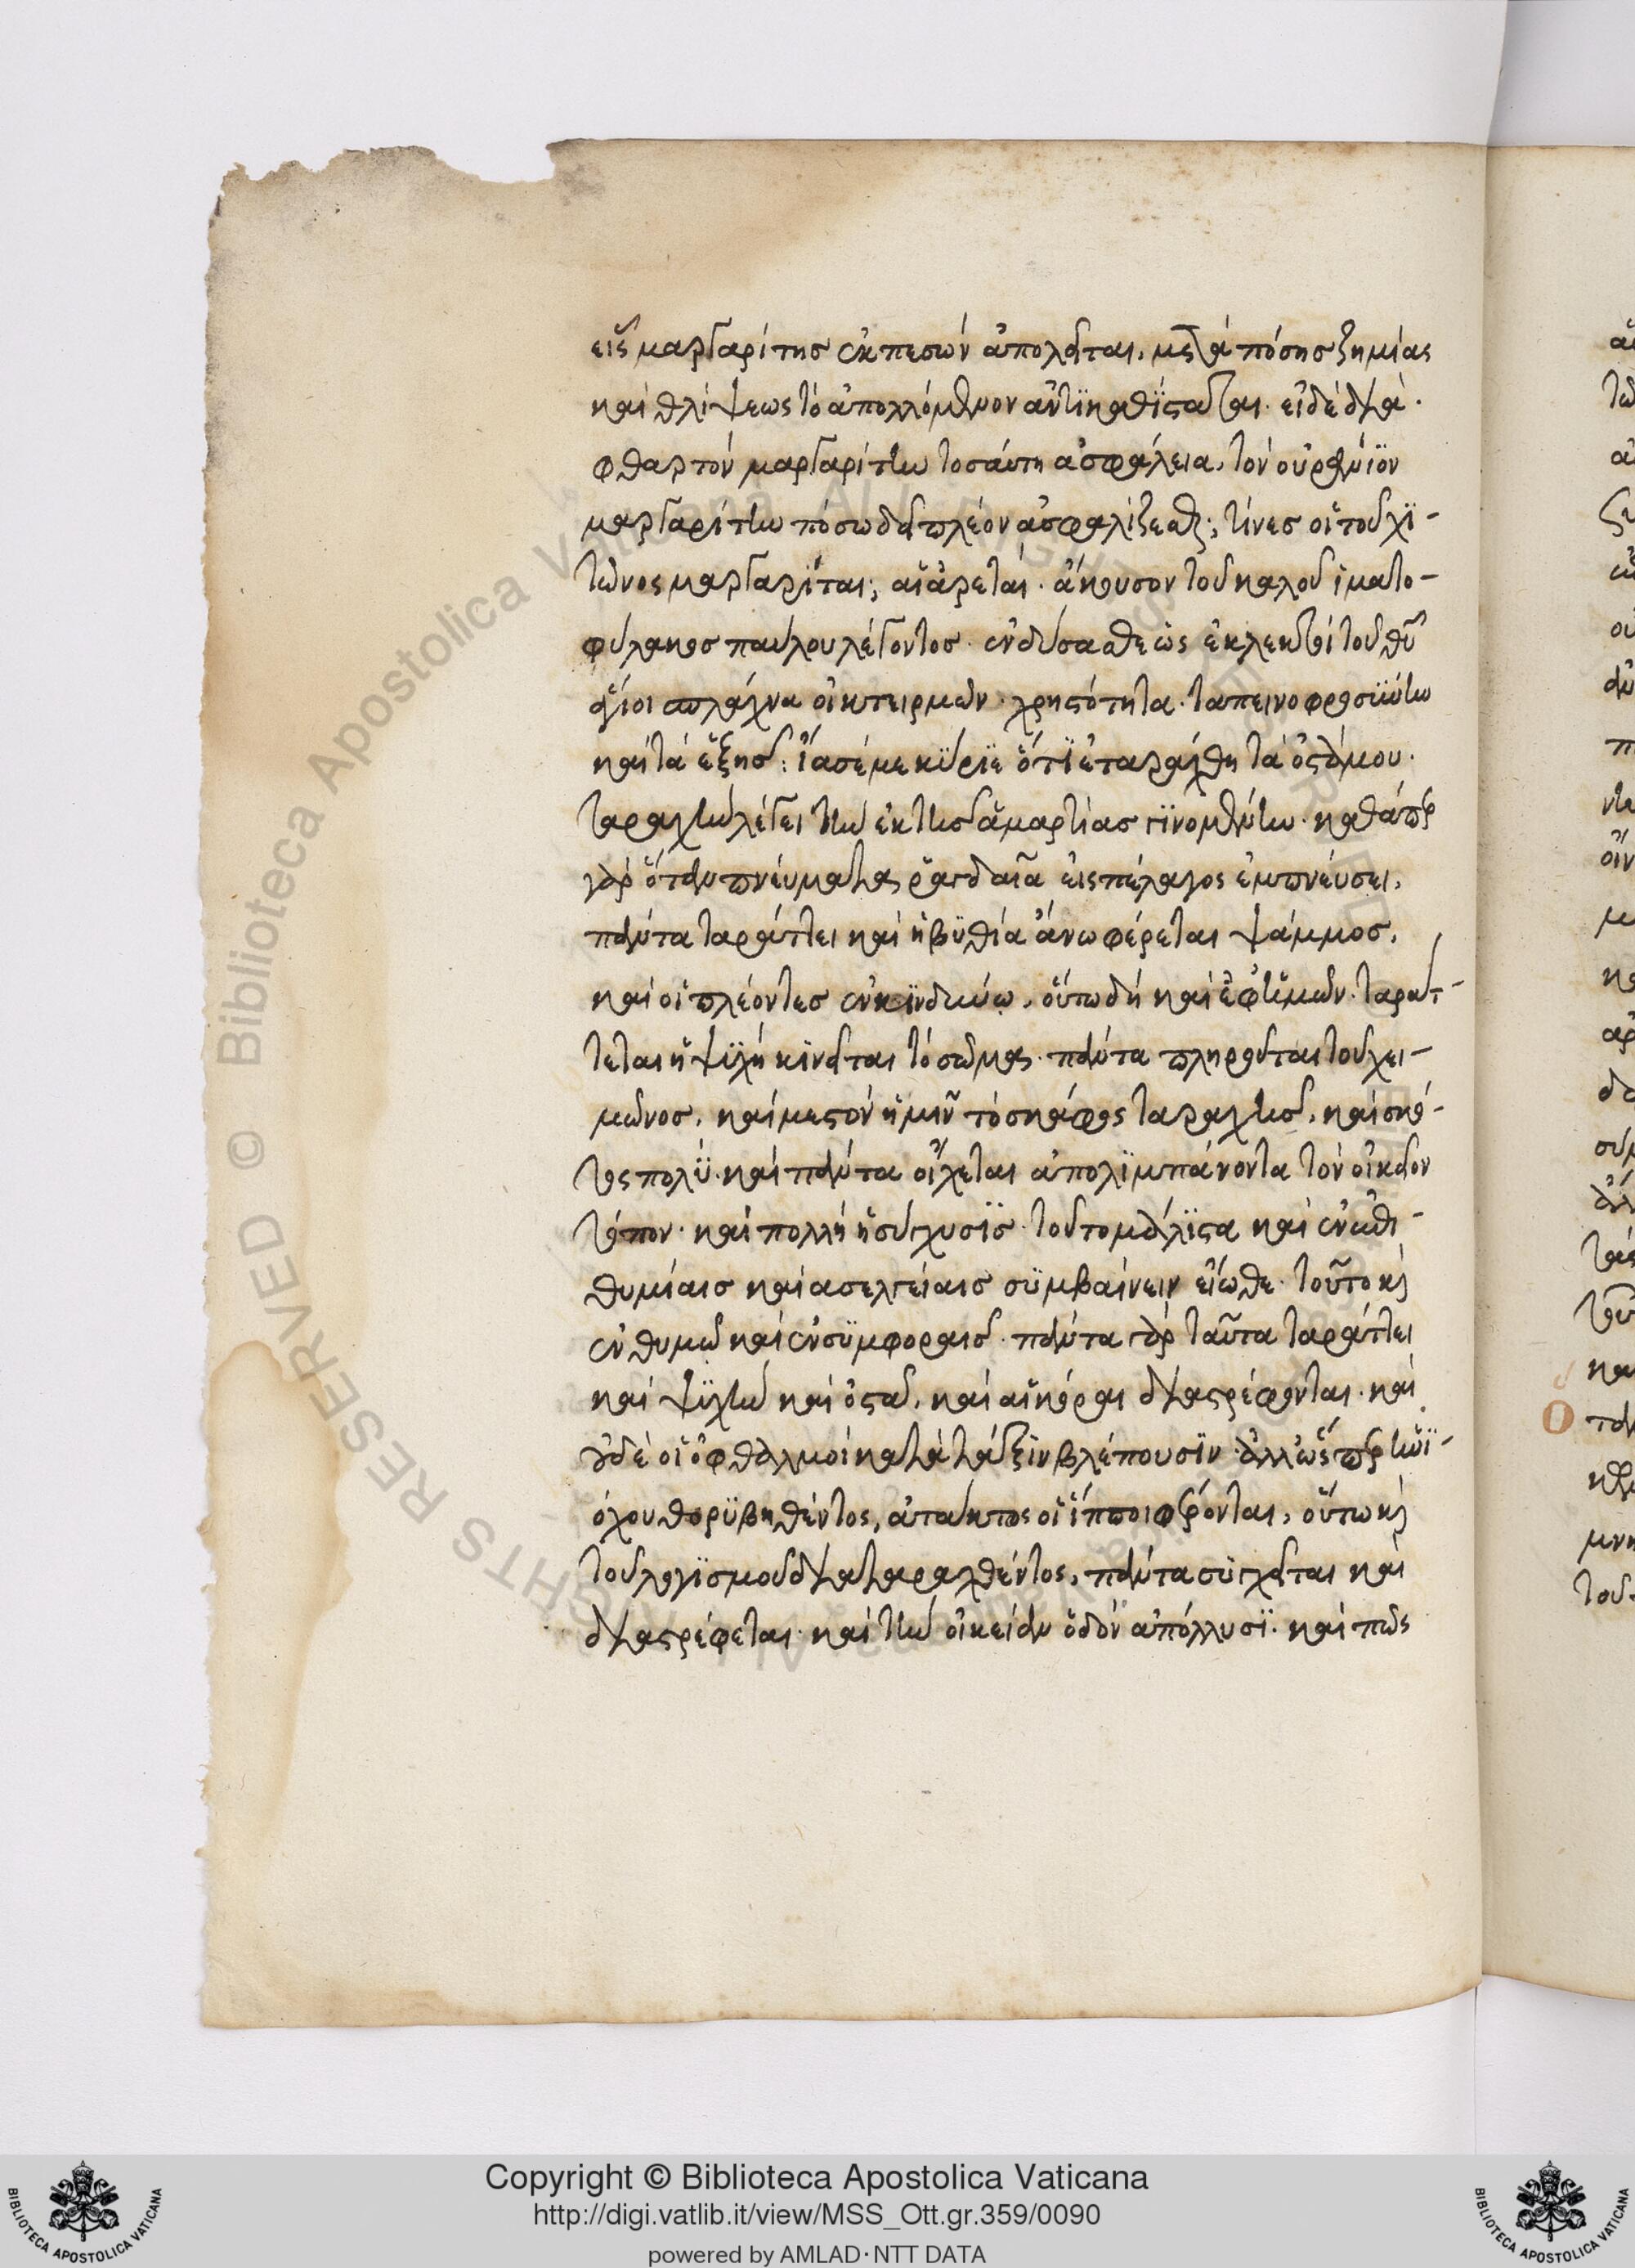 εἷς μαργαρίτης ἐκπεσὼν ἀπολεῖται, μετὰ πόσης ζημίας
καὶ θλίψεως τὸ ἀπολλόμενον ἀντϊκαθϊσταται. εἰ δὲ διὰ
φθαρτὸν μαργαρίτην τοσάυτη ἀσφάλεια, τὸν οὐράνϊον
μαργαρίτην πόσω δεῖ πλέον ἀσφαλίζεσθαι; τίνες οἱ τοῦ χϊ-
τῶνος μαργαρῖται; αἱ ἀρεταί. ἄκουσον τοῦ καλοῦ ἱματο-
φύλακος παύλου λέγοντος. ἐνδύσασθε ὡς ἐκλεκτοὶ τοῦ θῦ
ἅγιοι σπλάχνα οἰκτειρμῶν. χρηστότητα. ταπεινοφροσϋύνην
καὶ τὰ ἑξῆς: ἴασέ με κϋριε ὅτϊ ἐταράχθη τὰ ὀστᾶ μου.
ταραχὴν λέγει τὴν ἐκ τῆς ἁμαρτίας γϊνομένην. καθάπερ
γὰρ ὅταν πνεύματα ραγδαῖα εἰς πέλαγος ἐμπνέυσει,
πάντα ταράττει καὶ ἡ βϋθία ἄνω φέρεται ψάμμος,
καὶ οἱ πλέοντες ἐν κϊνδύνω, οὕτω δὴ καὶ ἐφ' ἡμῶν. ταράτ-
τεται ἡ ψϋχὴ κϊνεῖται τὸ σῶμα. πάντα πληροῦται τοῦ χει-
μῶνος, καὶ μεστὸν ἡμῖν τὸ σκάφος ταραχῆς, καὶ σκό-
τος πολϋ. καὶ πάντα οἴχεται ἀπολϊμπάνοντα τὸν οἰκεῖον
τόπον. καὶ πολλὴ ἡ σύγχυσϊς. τοῦτο μάλϊστα καὶ ἐν ἐπι-
θυμίαις καὶ ασελγείαις σϋμβαίνειν εἴωθε. τοῦτο καὶ
ἐν θυμῶ καὶ ἐν σϋμφοραῖς. πάντα γὰρ ταῦτα ταράττει
καὶ ψϋχὴν καὶ ὀστᾶ, καὶ αἱ κόραι διαστρέφονται. καὶ
οὐδὲ οἱ ὀφθαλμοὶ κατὰ τάξϊν βλέπουσϊν. ἀλλ' ὥσπερ ἡνϊ-
όχου θορϋβηθέντος, ἀτάκτος οἱ ἵπποι φέρονται, οὕτω καὶ
τοῦ λογϊσμοῦ διαταραχθέντος, πάντα συγχεῖται καὶ
διαστρέφεται. καὶ τὴν οἰκείαν ὁδὸν ἀπόλλυσϊ. καὶ πῶς
Copyright © Biblioteca Apostolica Vaticana
http://digi.vatlib.it/view/MSS_Ott.gr.359/0090
powered by AMLAD·NTT DATA